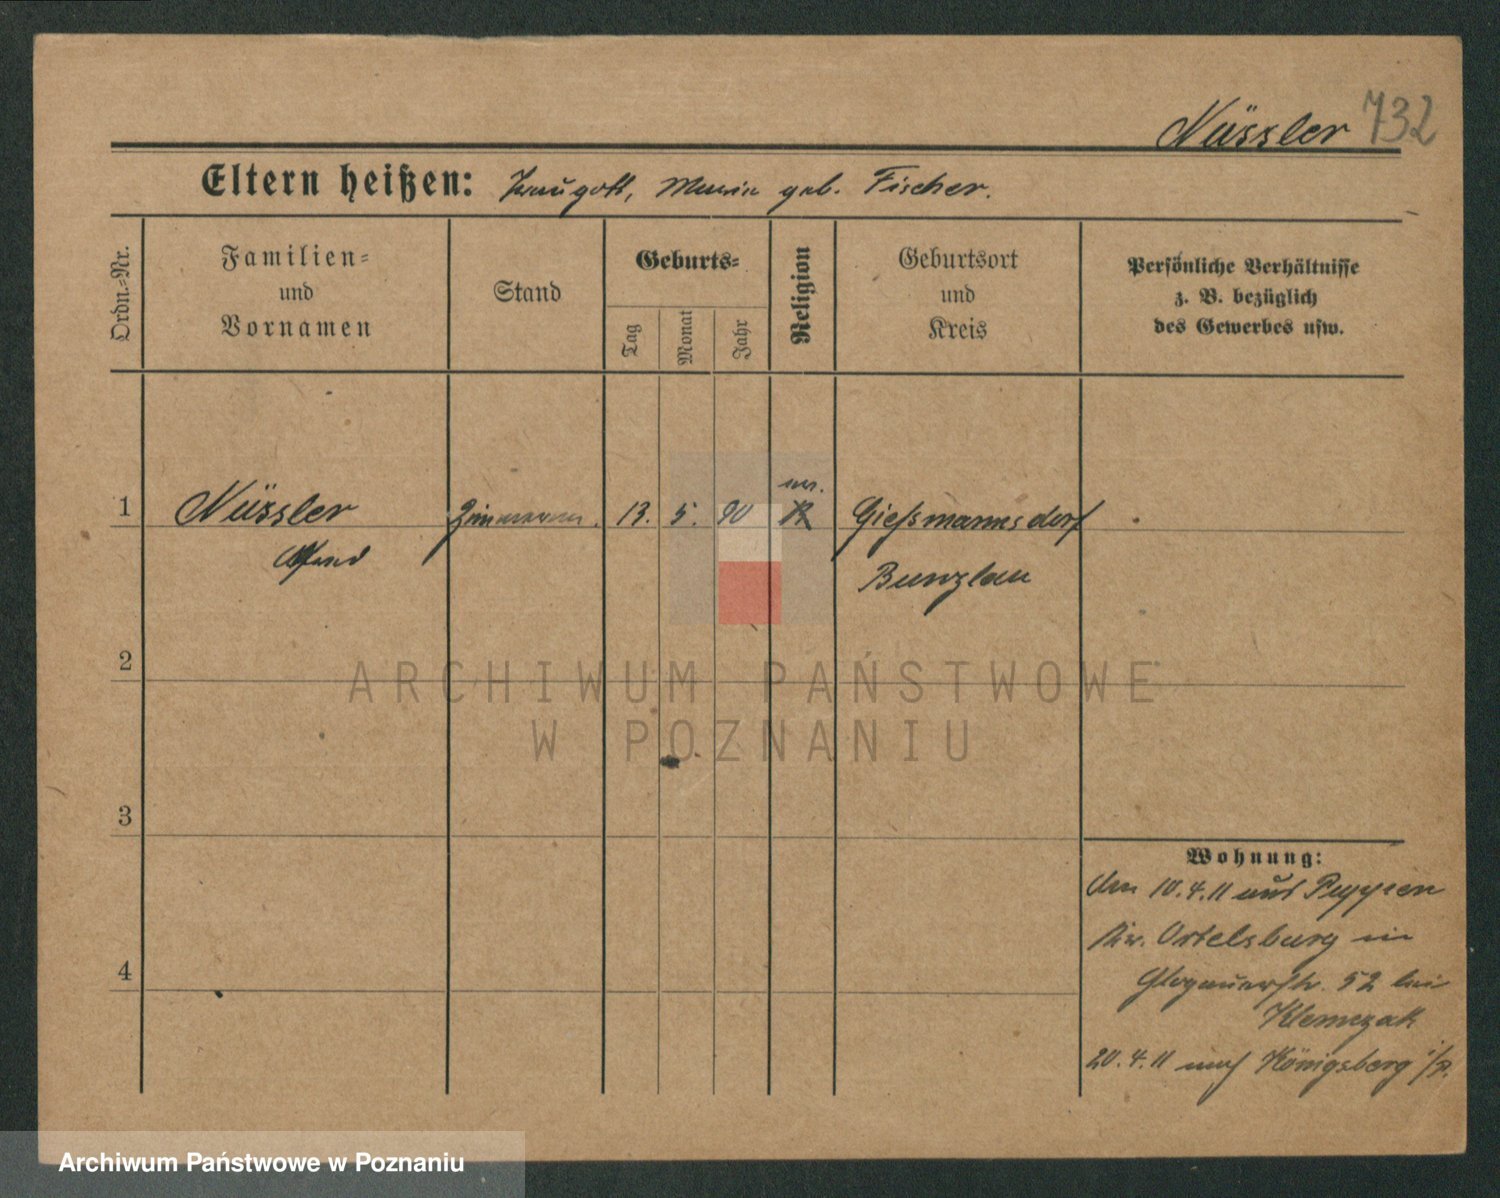 Nüssler 732
Eltern heißen: Traugott, Maria geb. Fischer.
Ordn.-Nr.
Familien-
und
Vornamen
Stand
Geburts-
Tag
Monat
Jahr
Religion
Geburtsort
und
Kreis
Persönliche Verhältnisse
z. B. bezüglich
des Gewerbes usw.
1 Nüssler Zimmerm. 13. 5. 90 Gießmannsdorf
Bunzlau
2
3
4
Wohnung:
Am 10.4.11 aus Puppen
Kr. Ortelsburg in
Glogauerstr. 52 bei
Klemczak
20.4.11 nach Königsberg i/P.
ARCHIWUM PAŃSTWOWE
W POZNANIU
Archiwum Państwowe w Poznaniu